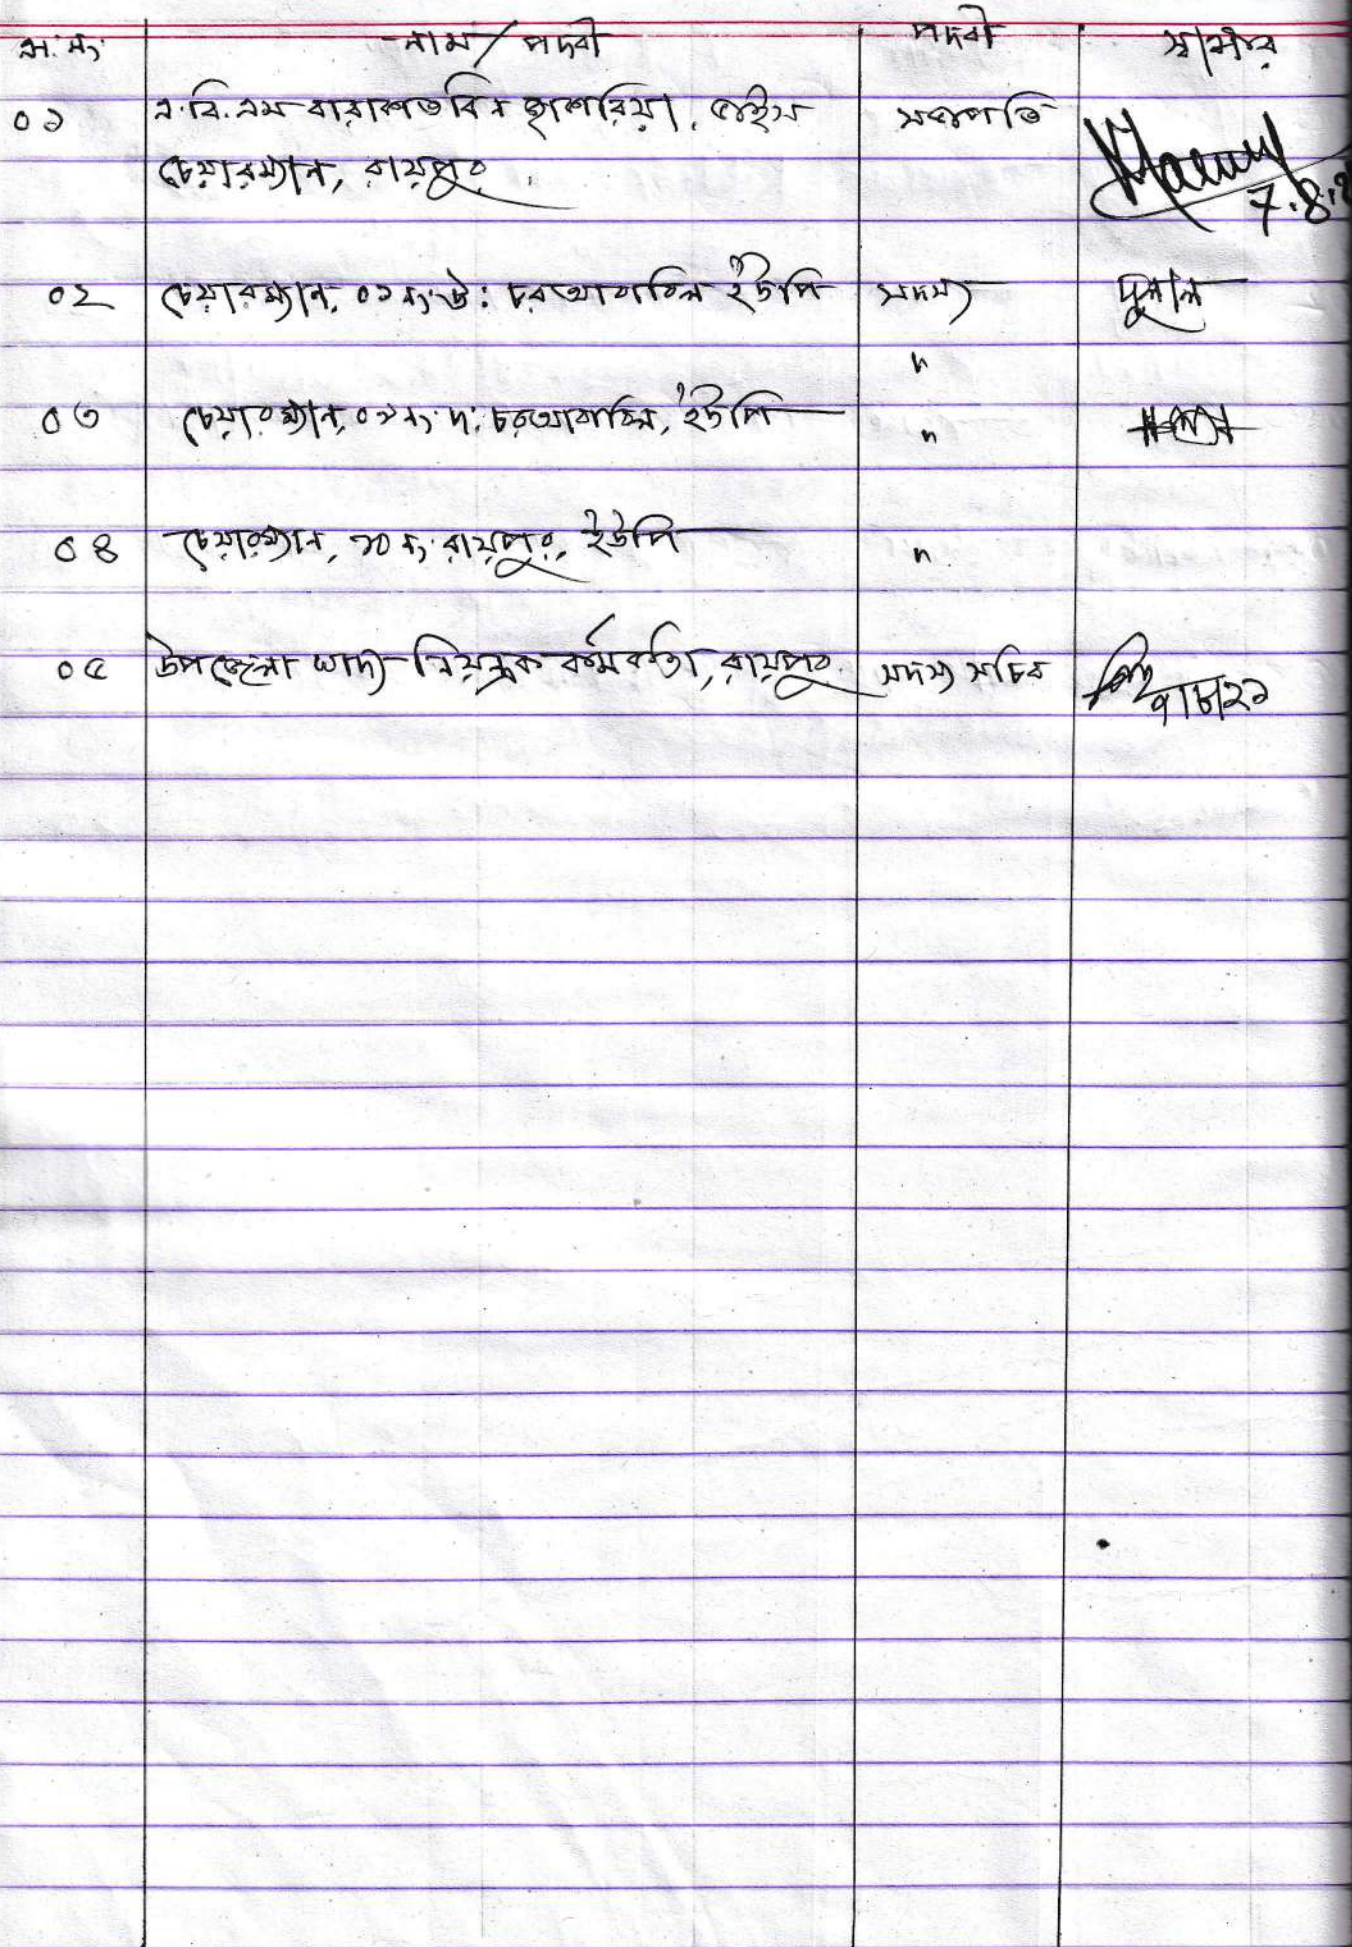 ক্র: নং নাম/পদবী পদবী স্বাক্ষর
০১ এ.বি.এম মারুফ বিন জাকারিয়া, ভাইস সভাপতি
চেয়ারম্যান, রায়পুর 7.8.2
০২ চেয়ারম্যান, ০১ নং উ: চরআবাবিল ইউপি সদস্য দুলাল
"
০৩ চেয়ারম্যান, ০৯ নং দ: চরআবাবিল, ইউপি "
০৪ চেয়ারম্যান, ১০ নং রায়পুর, ইউপি "
০৫ উপজেলা খাদ্য নিয়ন্ত্রক কর্মকর্তা, রায়পুর সদস্য সচিব ৭/৮/২১